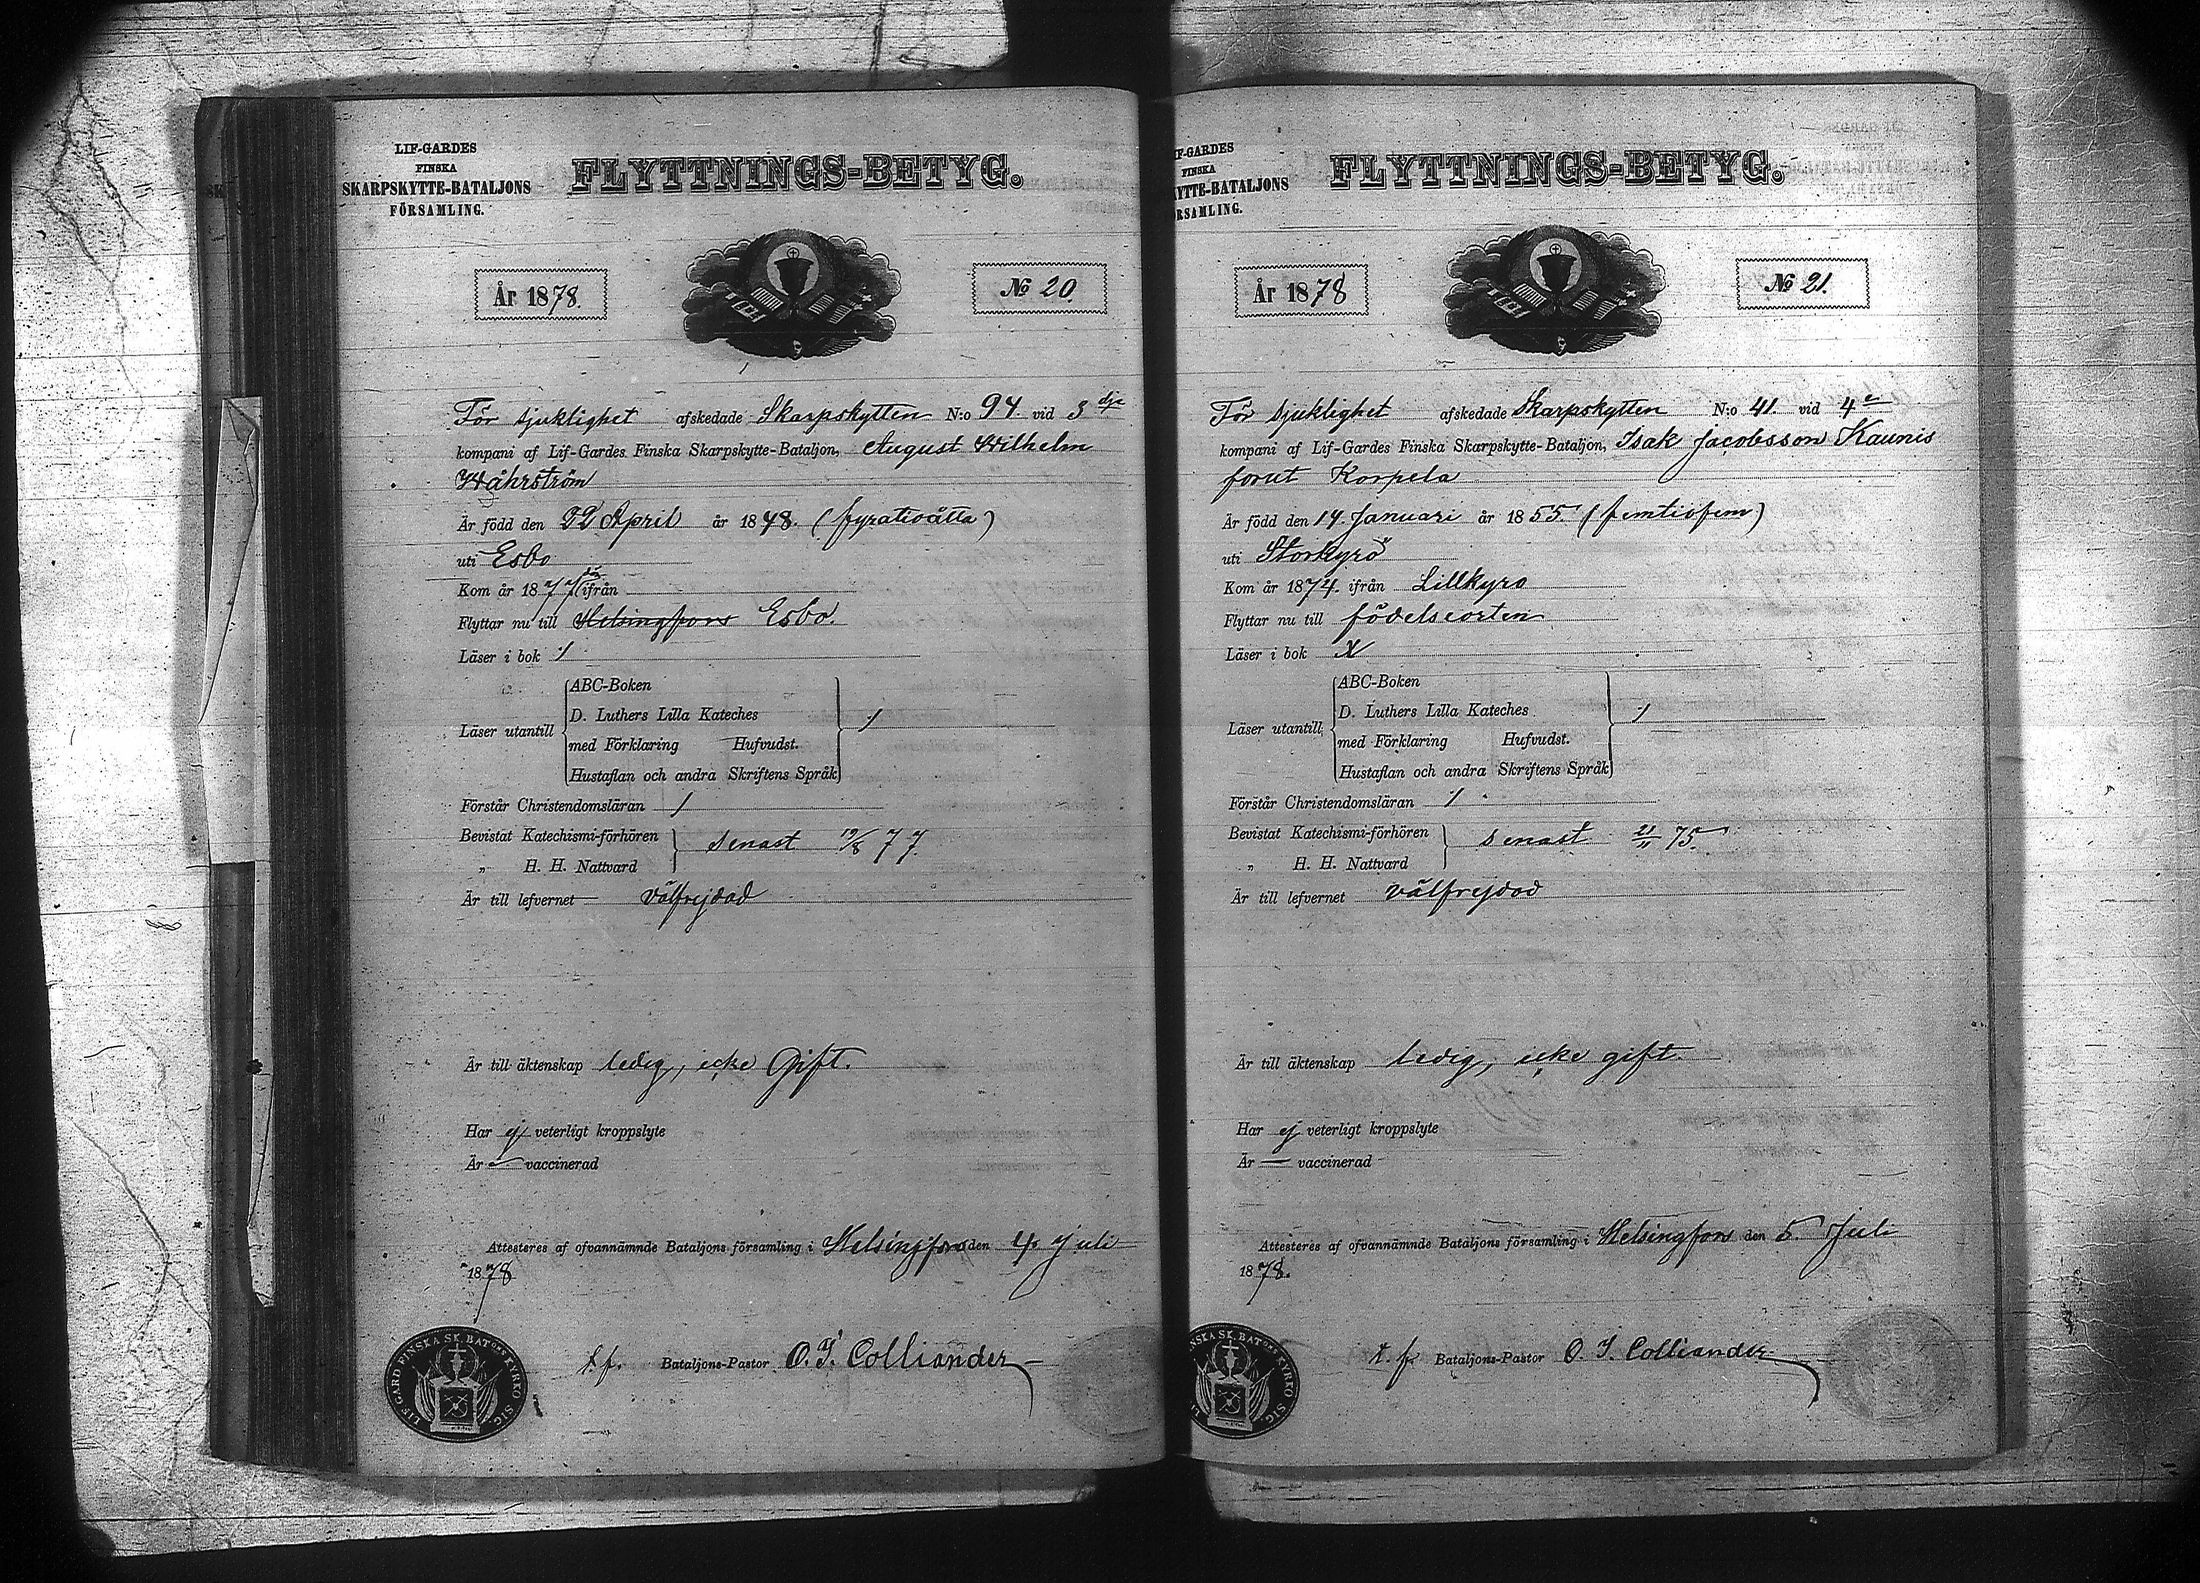 LIF-GARDES
FINSKA
SKARPSKYTTE-BATALJONS
FÖRSAMLING.
FLYTTNINGS-BETYG.
År 1878.
No 20.
För sjuklighet afskedade Skarpskytten N:o 94 vid 3 dje
kompani af Lif-Gardes Finska Skarpskytte-Bataljon, August Wilhelm
Wåhrström
Är född den 22 April år 1848. (fyratioåtta)
uti Esbo
Kom år 1877 ifrån
Flyttar nu till Helsingfors Esbo.
Läser i bok 1
Läser utantill
ABC-Boken
D. Luthers Lilla Kateches
med Förklaring Hufvudst.
Hustaflan och andra Skriftens Språk
1
Förstår Christendomsläran 1
Bevistat Katechismi-förhören
„ H. H. Nattvard
senast 19/8 77.
Är till lefvernet välfrejdad
Är till äktenskap ledig, icke Gift.
Har ej veterligt kroppslyte
Är — vaccinerad
Attesteras af ofvannämnde Bataljons församling i Helsingfors den 4 Juli
1878
t.f. Bataljons-Pastor O. I. Colliander
LIF-GARD FINSKA SK. BAT:ONS KYRKO SIG.
IF-GARDES
FINSKA
YTTE-BATALJONS
RSAMLING.
FLYTTNINGS-BETYG.
År 1878
No 21.
För sjuklighet afskedade Skarpskytten N:o 41. vid 4e
kompani af Lif-Gardes Finska Skarpskytte-Bataljon, Isak Jacobsson Kaunis
forut Korpela
Är född den 14. Januari år 1855. (femtiofem)
uti Storkyrö
Kom år 1874. ifrån Lillkyro
Flyttar nu till födelseorten
Läser i bok X
Läser utantill
ABC-Boken
D. Luthers Lilla Kateches
med Förklaring Hufvudst.
Hustaflan och andra Skriftens Språk
1
Förstår Christendomsläran 1
Bevistat Katechismi-förhören
„ H. H. Nattvard
senast 21/11 75.
Är till lefvernet välfrejdad
Är till äktenskap ledig, icke gift.
Har ej veterligt kroppslyte
Är — vaccinerad
Attesteras af ofvannämnde Bataljons församling i Helsingfors den 5. Juli
1878.
t.f. Bataljons-Pastor O. I. Colliander